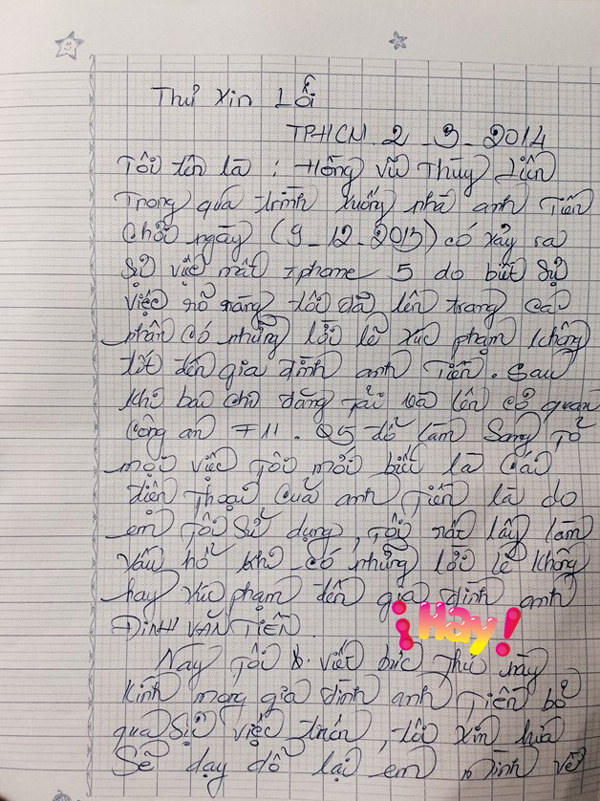 Thư Xin Lỗi
TPHCM 2-3-2014
Tôi tên là : Hồng Vũ Thùy Liên
Trong quá trình xuống nhà anh Tiến
Chơi ngày (9-12-2013) có xảy ra
Sự việc mất iphone 5 do biết sự
việc rõ ràng tôi đã lên trang cá
nhân có những lời lẽ xúc phạm không
tốt đến gia đình anh Tiến. Sau
khi báo chí đăng tải và lên cơ quan
Công an F11. Q5 để làm sáng tỏ
mọi việc Tôi mới biết là cái
điện thoại của anh Tiến là do
em Tôi sử dụng, Tôi rất lấy làm
xấu hổ khi có những lời lẽ không
hay xúc phạm đến gia đình anh
ĐINH VĂN TIẾN.
¡Hay!
Nay Tôi viết bức thư này
Kính mong gia đình anh Tiến bỏ
qua sự việc trên, tôi xin hứa
Sẽ dạy dỗ lại em mình về